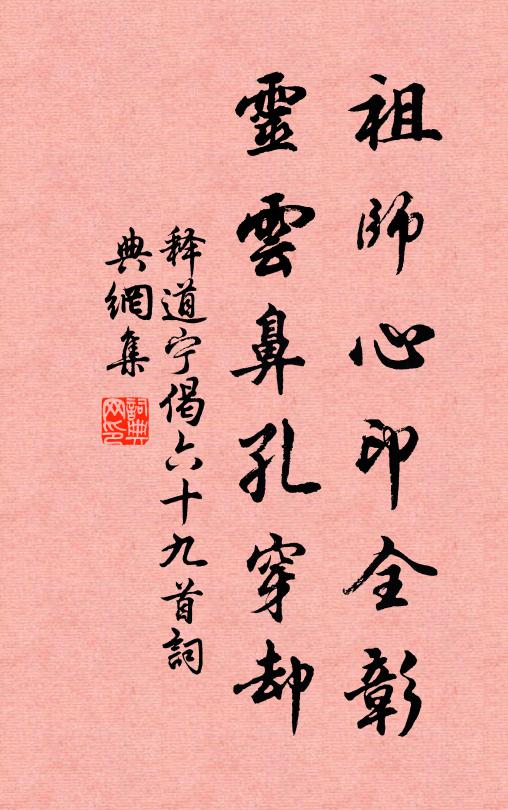 祖師心印全彰
靈雲鼻孔穿却
释道宁偈六十九首詞
典網集
詞典网印